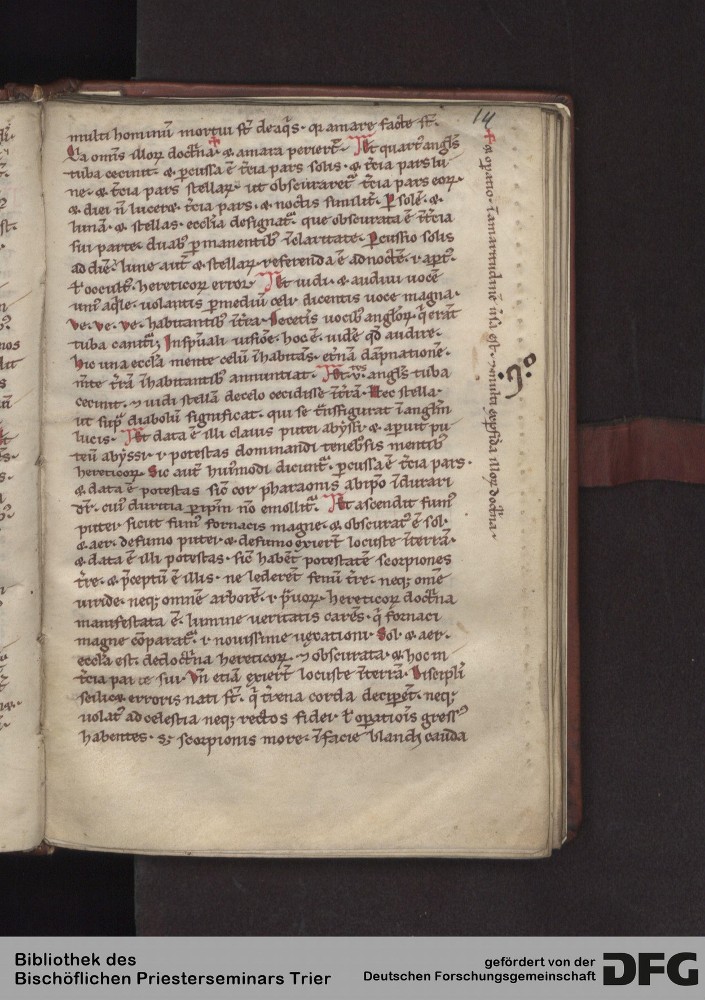 14
multi hominū mortui st̄ de aq̄s · qr amare facte st̄ ·
Ea omīs illoꝝ doct̄na · & amara perier̄t · Et quart' angl̄s
tuba cecinit · & p̄cussa ē t̄cia pars solis · & t̄cia pars lu
ne · & t̄cia pars stellaꝝ · ut obscuraret᷑ t̄cia pars eoꝝ ·
& diei n̄ lucer& t̄cia pars · & noctis similit̄ · Ꝑ solē · &
lunā · & stellas · ecclīa designat᷑ · que obscurata ē ī t̄cia
sui parte · duab' ꝑmanentib' ī claritate · Ꝑcussio solis
ad diē · lune aut̄ & stellaꝝ · referenda ē ad noctē · ł apt' ·
ł occult' hereticoꝝ error · Et uidi · & audiui uocē
uni' aq̄le · uolantis ꝑ mediū celi · dicentis uoce magna ·
ve · ve · ve · habitantib' ī t̄ra · de cet̄is vocib' angloꝝ · q̄ erāt
tuba canit᷑i · In sp̄uali uisiōe · hoc ē · uidē qd̄ audire ·
hic una eccl̄a mente celū īhabitās · et̄nā dāpnationē ·
m̄te t̄rā īhabitantib' annuntiat · Et · v · angl̄s tuba
cecinit · ⁊ uidi stellā de celo cecidisse ī t̄rā · Hec stella ·
ut sup᷑ diabolū significat · qui se t̄nsfigurat ī angl̄m
lucis · Et data ē illi clauis putei abyssi · & aperuit pu
teū abyssi · ł potestas dominandi tenebrosis mentib'
hereticoꝝ · Sic aut̄ hui'modi dicunt᷑ · p̄cussa ē t̄cia pars ·
& data ē potestas · sic̄ cor pharaonis ab ipo īdurari
dr̄ · cui' duritia ꝑ ip̄m nō emollit᷑ · Et ascendit fum'
putei · sicut fum' fornacis magne · & obscurat' ē sol ·
& aer · de fumo putei · & de fumo exier̄t locuste ī terrā ·
& data ē illi potestas · sic̄ habēt potestatē scorpiones
t̄re · & p̄ceptū ē illis · ne lederēt fenū t̄re · neqꝫ omē
uiride · neqꝫ omnē arborē · ł p̄uoꝝ hereticoꝝ doct̄na
manifestata ē · lumine ueritatis carēs · q̄ fornaci
magne cōparat᷑ · ł nouissime uexationi · Sol · & aer ·
eccl̄a est · de doct̄na hereticoꝝ · ⁊ obscurata · & hoc in
t̄cia parte sui · Vn̄ etiā exier̄t locuste ī terrā · Discipli
scilic& erroris nati st̄ · q̄ t̄rena corda decip̄et · neqꝫ
uolat' ad celestia neqꝫ rectos fidei · ł opationīs gress'
habentes · S; scorpionis more · ī facie blandi cauda
opatio · ī amaritudinē uīsa est · ⁊ multi ex ꝑfidia illoꝝ doct̄na ·
Bibliothek des
Bischöflichen Priesterseminars Trier
gefördert von der
Deutschen Forschungsgemeinschaft
DFG